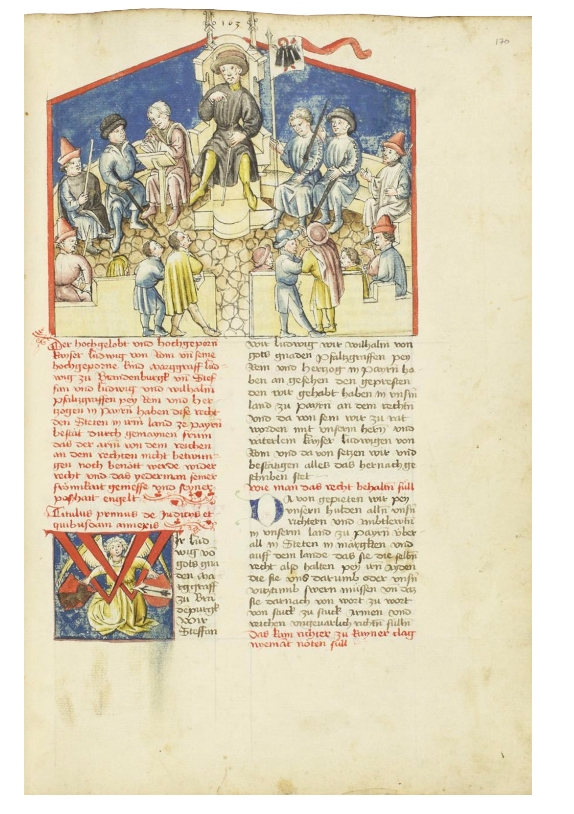 163
170
Der hochgelobt vnd hochgeporn
kayser ludwig von Rom vnd seine
hochgeporne kind marggraff lud-
wig zu Brandenburgk vnd Stef
fan vnd ludwig vnd wilhalm
Pfaltzgraffen pey Rein vnd her
zogen in Payrn haben dise recht
den Steten in irm land ze payrn
bestät durch gemainen frum
das der arm von dem reichen
an dem rechten nicht betwun-
gen noch benött werde wider
recht vnd das yederman seiner
frömkait geniesse vnd seiner
poshait engelt
Titulus primus de Judicijs et
quibusdam annexis
Wir lud
wig vō
gots gna
den ma
rggraff
zu Bran
denpurgk
Wir
Steffan
wir ludwig wir wilhalm von
gots gnaden Pfaltzgraffen pey
Rein vnd herzog in Payrn ha
ben an gesehen den gepresten
den wir gehabt haben in vnsm
land zu payrn an dem rechtn
vnd da von sein wir zu rat
worden mit vnserm herrn vnd
vaterlein kayser ludwigen von
Rom vnd da von setzen wir vnd
bestätigen alles das hernach ge
schriben stet
wie man das recht behaltn sull
Da von gepieten wir pey
vnsern hulden alln vnsn
richtern vnd ambtlewtn
in vnserm land zu payrn vber
all in Steten in märgkten vnd
auff dem lande das sie die selbn
recht also halten pey irn ayden
die sie vns darumb oder vnsn
viztumb swern müssen vnd das
sie darnach von wort zu wort
von stuck zu stuck Armen vnd
reichen vngeuarlich richtn sulln
Das kain richter zu kayner clag
nyemant nöten sull